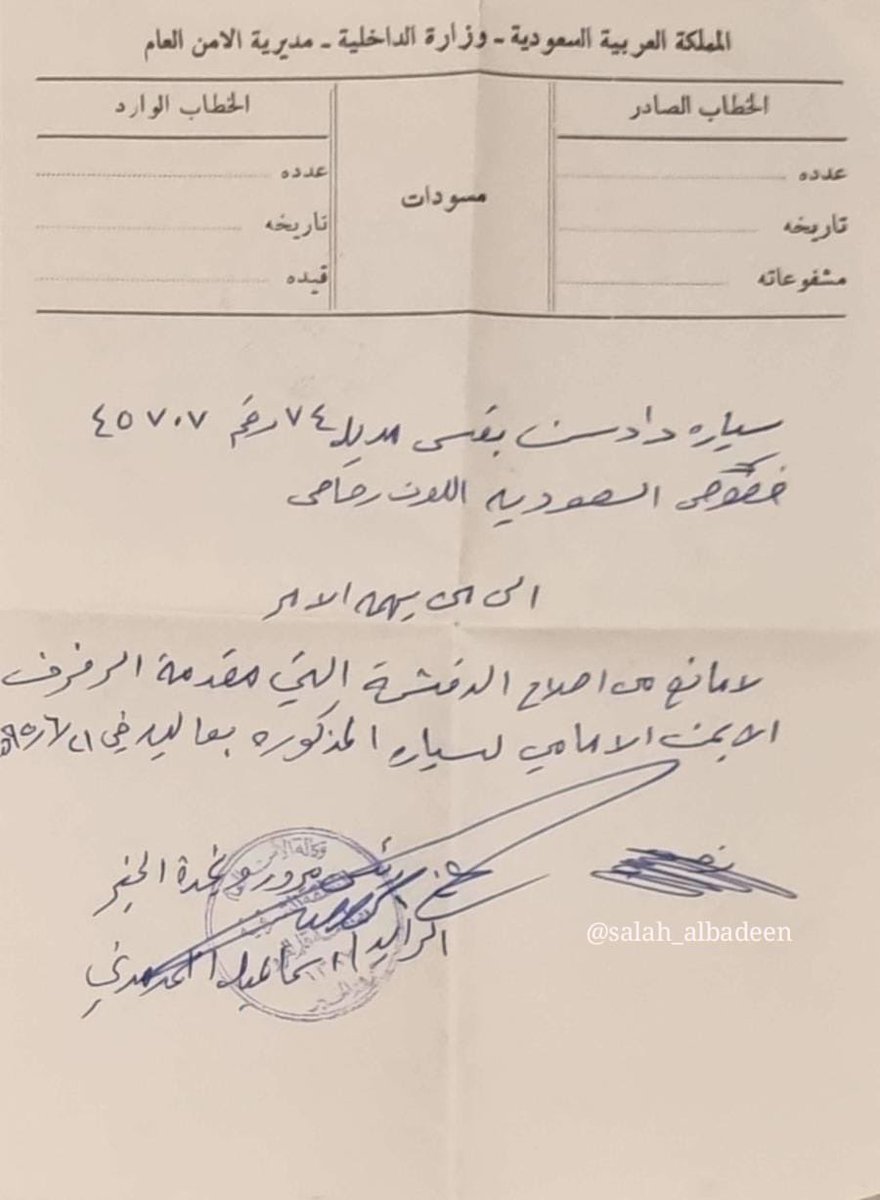 المملكة العربية السعودية - وزارة الداخلية - مديرية الامن العام
الخطاب الصادر
عدده
تاريخه
مشفوعاته
مسودات
الخطاب الوارد
عدده
تاريخه
قيده
سياره دادسن بقسى مديل ٧٤ رقم ٤٥٧٠٧
خصوصى السعوديه اللون رصاصى
الى من يهمه الامر
لا مانع من اصلاح الدقشة التي مقدمة الرفرف
الايمن الامامي لسياره المذكوره بعاليه في
رئيس مرور وغدة الخبر
الرائد اسماعيل
@salah_albadeen